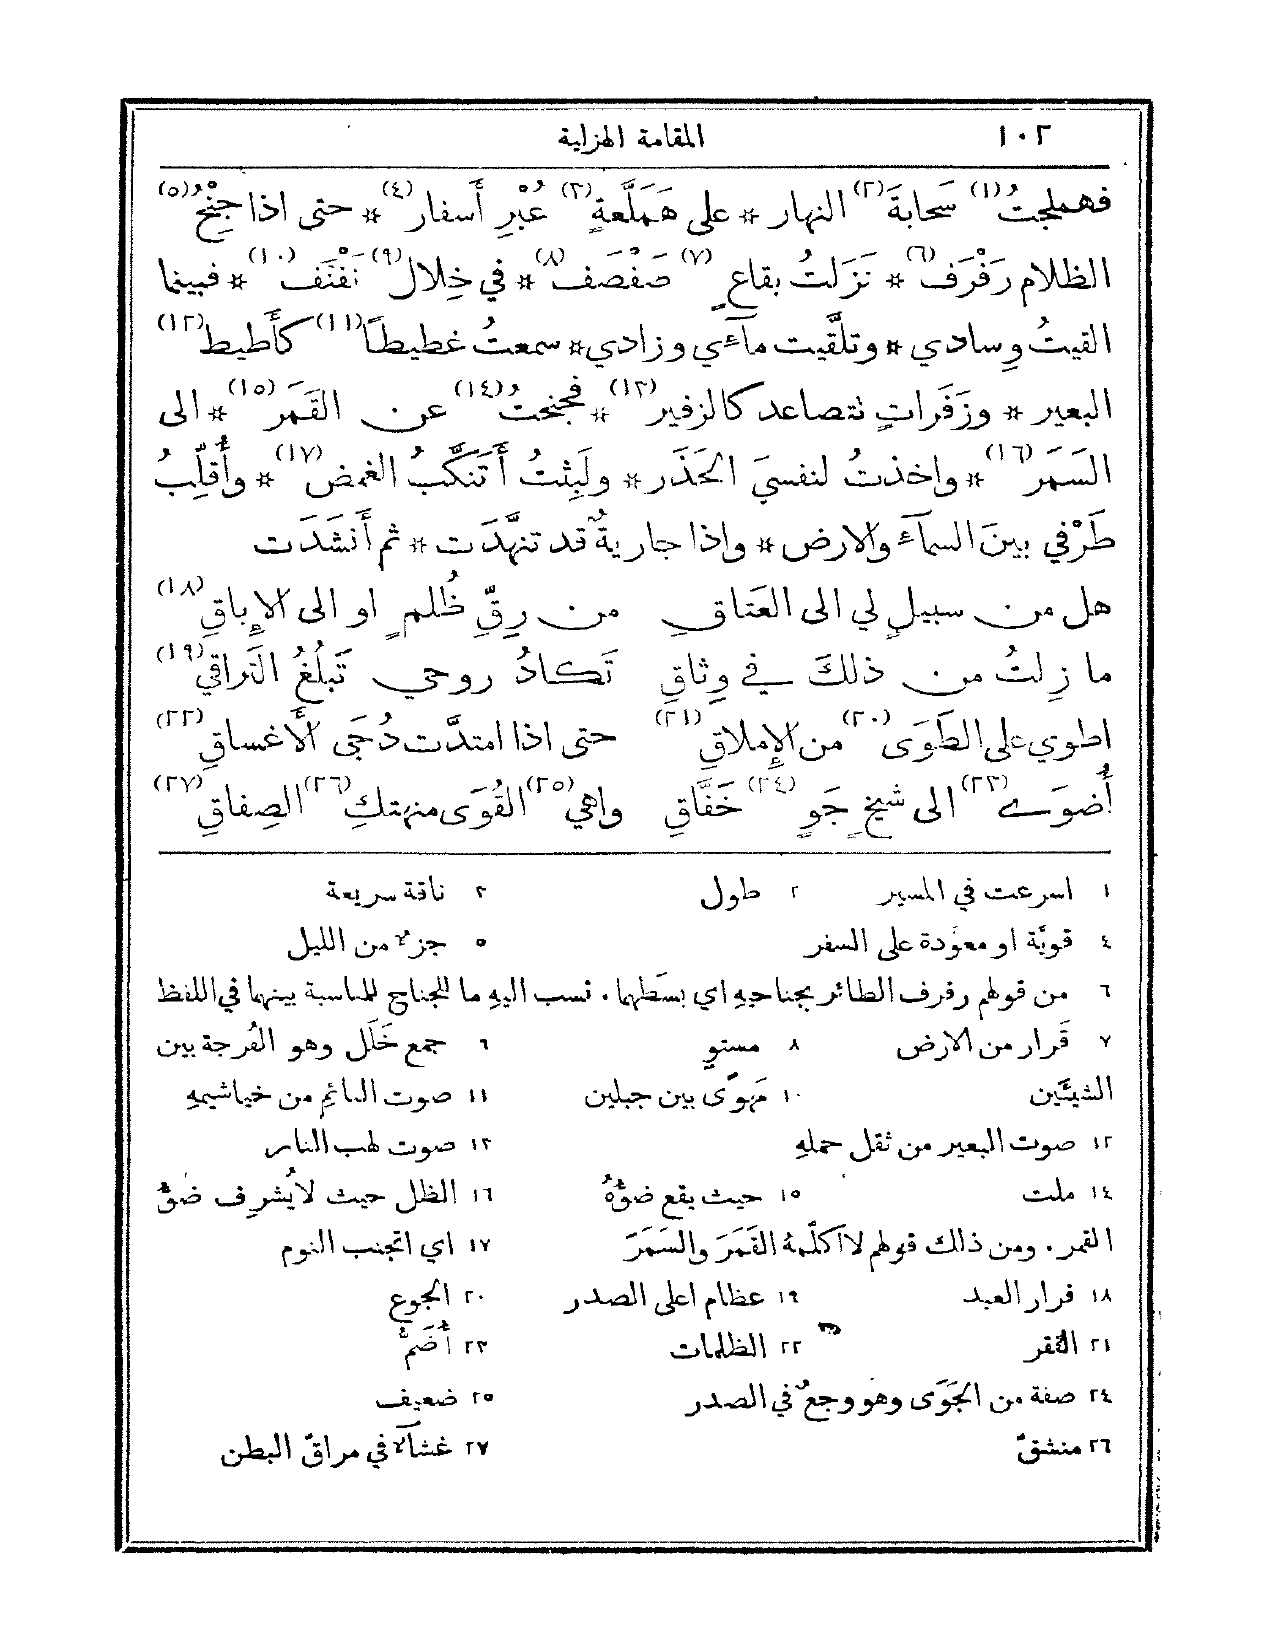 ١٠٢ المقامة الهزلية
فهملجتُ(١) سَحابةَ(٢) النهار * على هَمَلَّعةٍ(٣) عُبْرِ أَسفار(٤) * حتى اذا جِنْحُ(٥)
الظلام رَفْرَف(٦) * نَزَلتُ بقاعٍ(٧) صَفْصَف(٨) * في خِلال(٩) نَفْنَف(١٠) * فبينما
القيتُ وِسادي * وتلقَّيت ماءَي وزادي * سمعتُ غطيطًا(١١) كأَطيط(١٢)
البعير * وزَفَراتٍ تتصاعد كالزفير(١٣) * فجنحتُ(١٤) عن القَمَر(١٥) * الى
السَمَر(١٦) * واخذتُ لنفسيَ الحَذَر * ولَبِثتُ أَتَنكَّبُ الغمض(١٧) * وأُقلِّبُ
طَرْفي بينَ السمآءِ والارض * واذا جاريةٌ قد تنهَّدَت * ثم أَنشَدَت
هل من سبيلٍ لي الى العَتاقِ من رِقِّ ظُلمٍ او الى الإِباقِ(١٨)
ما زِلتُ من ذلكَ في وِثاقِ تَكادُ روحي تَبلُغُ التراقي(١٩)
اطوي على الطَوَى(٢٠) من الإِملاقِ(٢١) حتى اذا امتدَّت دُجَى الأَغساقِ(٢٢)
أُضوَى(٢٣) الى شيخٍ جَوٍ(٢٤) خَفَّاقِ واهي(٢٥) القُوَى منهتكِ(٢٦) الصِفاقِ(٢٧)
١ اسرعت في المسير ٢ طول ٣ ناقة سريعة
٤ قويَّة او معوَّدة على السفر ٥ جزءٌ من الليل
٦ من قولهم رفرف الطائر بجناحيهِ اي بسَطهما. نسب اليهِ ما للجناح للمناسبة بينهما في اللفظ
٧ قَرار من الارض ٨ مستوٍ ٦ جمع خَلَل وهو الفُرجة بين
الشيئَين ١٠ مَهوًى بين جبلين ١١ صوت النائم من خياشيمهِ
١٢ صوت البعير من ثقل حملهِ ١٣ صوت لهب النار
١٤ ملت ١٥ حيث يقع ضوُّهُ ١٦ الظل حيث لا يُشرِف ضوُّ
القمر. ومن ذلك قولهم لا أُكلّمهُ القَمَرَ والسَمَرَ ١٧ اي اتجنب النوم
١٨ فرار العبد ١٩ عظام اعلى الصدر ٢٠ الجوع
٢١ الفقر ٢٢ الظلمات ٢٣ أُضَمُّ
٢٤ صفة من الجَوَى وهو وجعٌ في الصدر ٢٥ ضعيف
٢٦ منشقّ ٢٧ غشآءٌ في مراقّ البطن